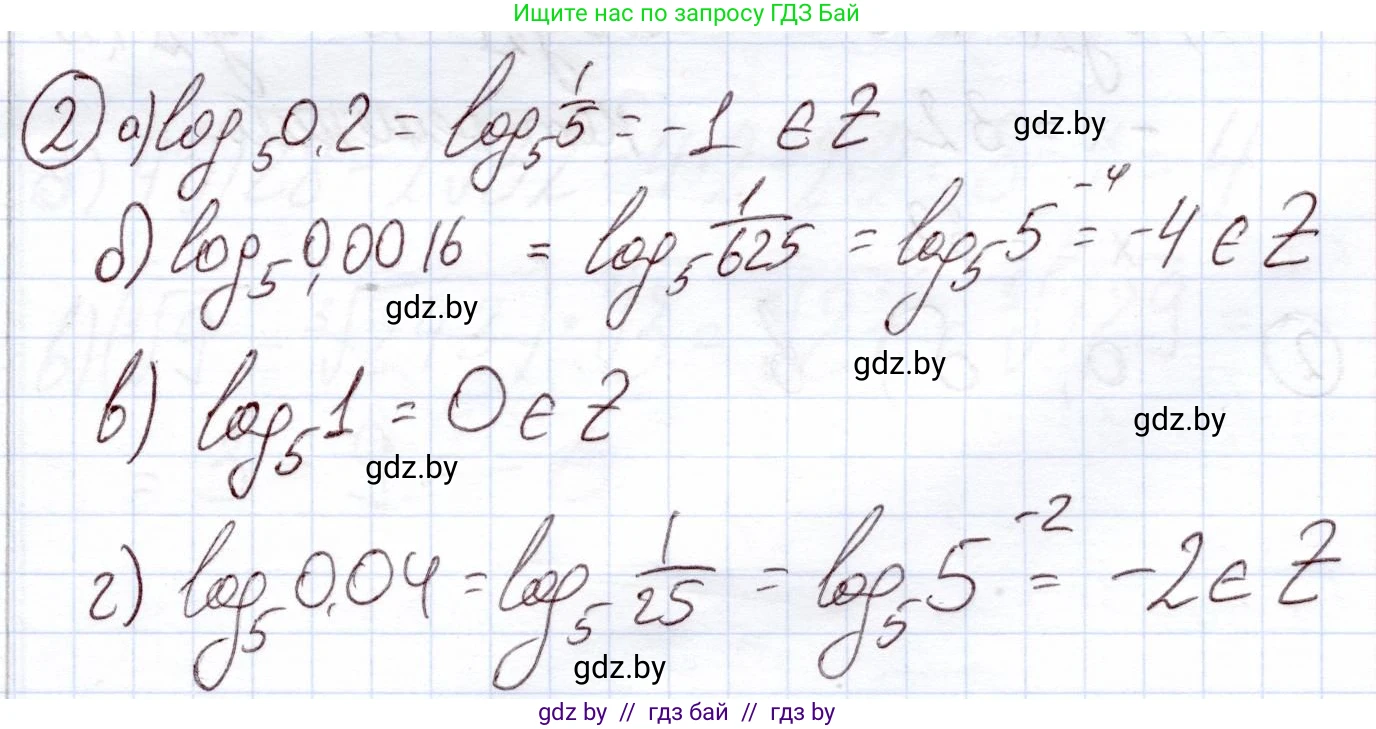 Ищите нас по запросу ГДЗ Бай
② а) log₅0,2 = log₅ 1/5 = -1 ∈ Z
gdz.by
б) log₅0,0016 = log₅ 1/625 = log₅5⁻⁴ = -4 ∈ Z
gdz.by
gdz.by
в) log₅1 = 0 ∈ Z
gdz.by
gdz.by
г) log₅0,04 = log₅ 1/25 = log₅5⁻² = -2 ∈ Z
gdz.by
gdz by // гдз бай // гдз by